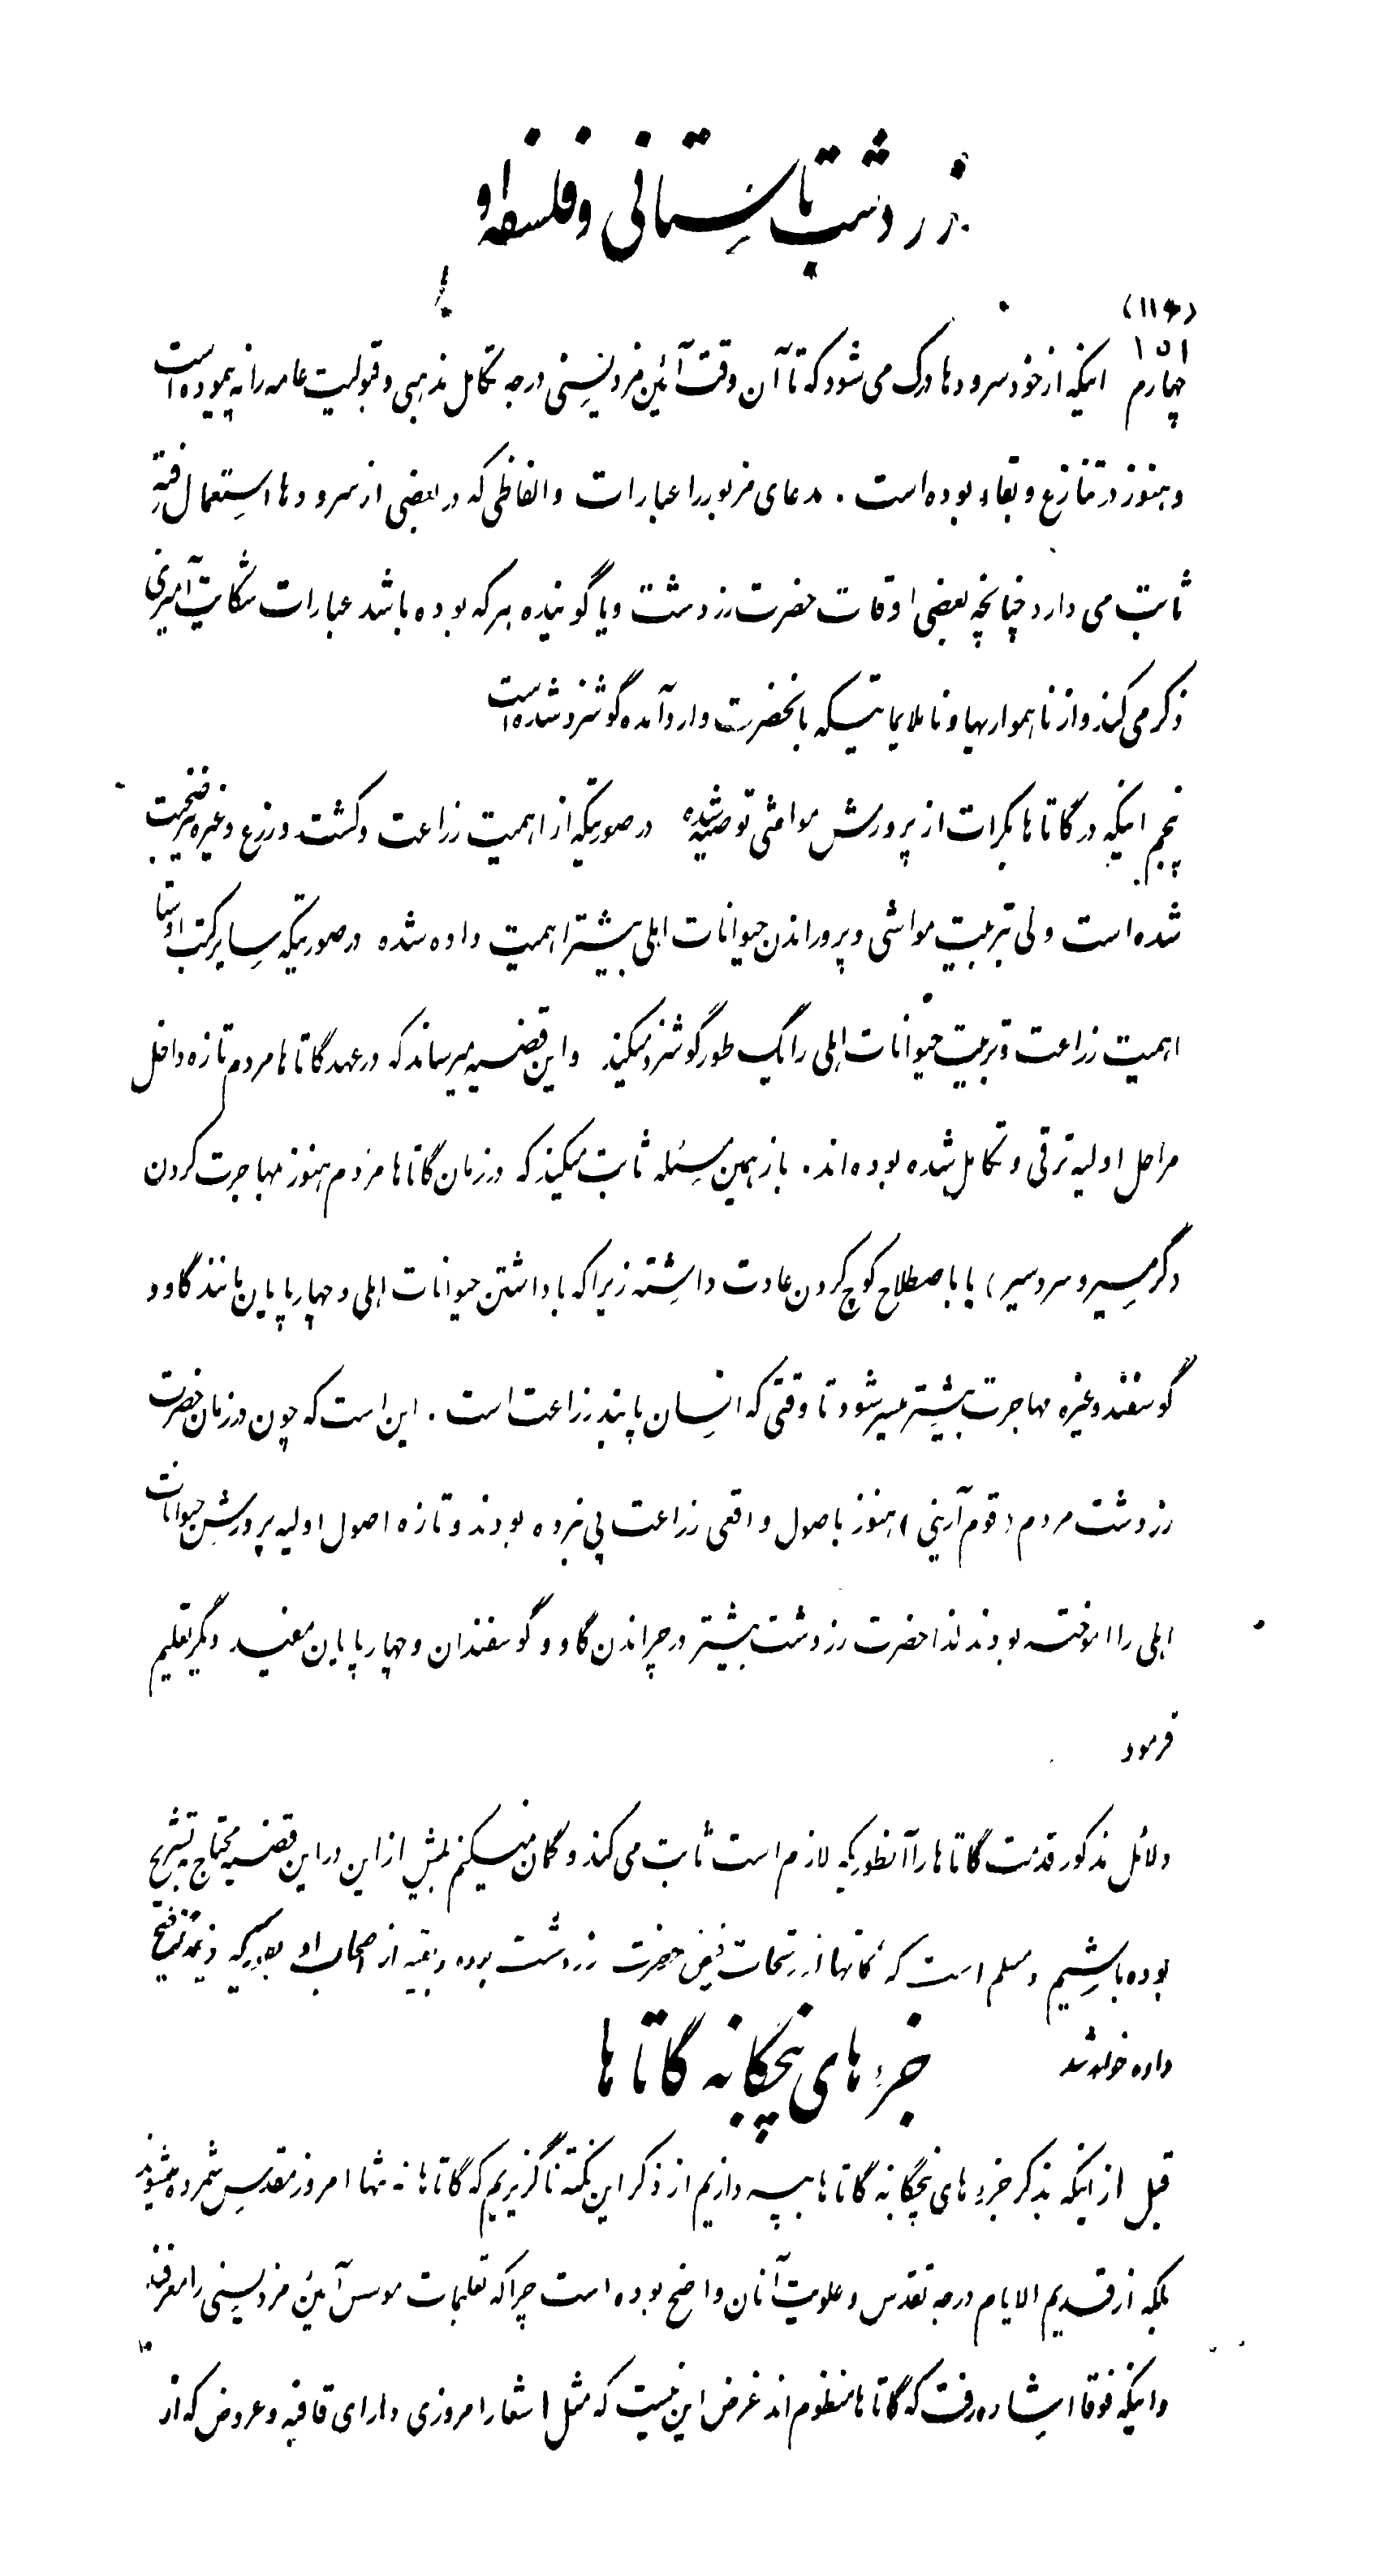 زردشت باستانی و فلسفه او
(۱۱۶)
۱۵۱
چهارم اینکه از خود سرودها درک می شود که تا آن وقت آئین مزدیسنی درجه تکامل مذهبی و قبولیت عامه را نه پیموده است
و هنوز در تنازع و بقاء بوده است . مدعای مزبور را عبارات والفاظی که در بعضی از سرودها استعمال رفته
ثابت می دارد چنانچه بعضی اوقات حضرت زردشت و یا گوینده هر که بوده باشد عبارات شکایت آمیزی
ذکر می کند و از ناهمواریها و ناملایماتیکه بانحضرت وارد آمده گوشزد شده است
پنجم اینکه در گاتاها بکرات از پرورش مواشی توصیه شده در صورتیکه از اهمیت زراعت و کشت و زرع و غیره نیز صحبت
شده است ولی تربیت مواشی و پروراندن حیوانات اهلی بیشتر اهمیت داده شده در صورتیکه سایر کتب اوستا
اهمیت زراعت و تربیت حیوانات اهلی را یک طور گوشزد میکند و این قضیه میرساند که در عهد گاتاها مردم تازه داخل
مراحل اولیه ترقی و تکامل شده بوده اند . باز همین مسئله ثابت میکند که در زمان گاتاها مردم هنوز مهاجرت کردن
(گرمسیر و سردسیر) یا باصطلاح کوچ کردن عادت داشته زیرا که با داشتن حیوانات اهلی و چهارپایان مانند گاو و
گوسفند و غیره مهاجرت بیشتر میسر شود تا وقتی که انسان پابند زراعت است . این است که چون در زمان حضرت
زردشت مردم (قوم آرینی) هنوز باصول واقعی زراعت پی نبرده بودند و تازه اصول اولیه پرورش حیوانات
اهلی را اموخته بودند لذا حضرت زردشت بیشتر در چراندن گاو و گوسفندان و چهارپایان مفید دیگر تعلیم
فرمود
دلائل مذکور قدمت گاتاها را آنطوریکه لازم است ثابت می کند و گمان نمیکنم بیش از این در این قضیه محتاج بتشریح
بوده باشیم و مسلم است که گاتها از رشحات فیض حضرت زردشت بوده و بقیه از اصحاب او بطوریکه ذیلا توضیح
داده خواهد شد
جزءهای پنجگانه گاتاها
قبل از اینکه بذکر جزءهای پنجگانه گاتاها بپردازیم از ذکر این نکته ناگزیریم که گاتاها نه تنها امروز مقدس شمرده میشوند
بلکه از قدیم الایام درجه تقدس و علویت آنان واضح بوده است چراکه تعلیمات موسس آئین مزدیسنی را معرفند
و اینکه فوقا اشاره رفت که گاتاها منظوم اند غرض این نیست که مثل اشعار امروزی دارای قافیه و عروض که از